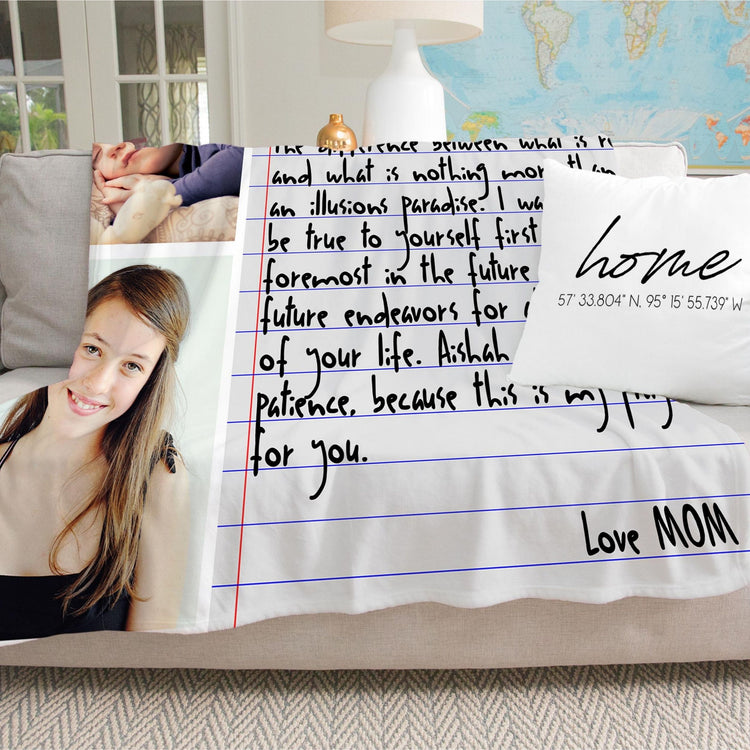 The difference between what is
and what is nothing more than
an illusions paradise. I
be true to yourself first
foremost in the future
future endeavors for
of your life. Aishah
patience, because this is my
for you.
Love MOM
home
57° 33.804" N, 95° 15' 55.739" W